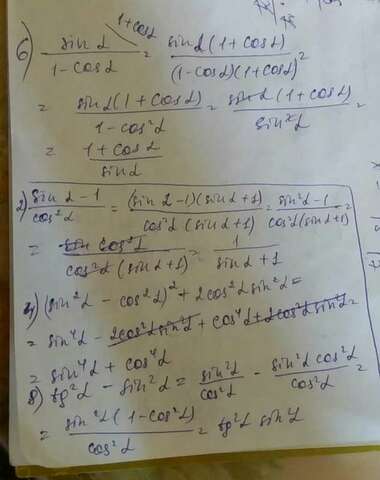 6) sin α / (1 - cos α) ^(1+cos α) = sin α (1 + cos α) / (1 - cos α)(1 + cos α) =
= sin α (1 + cos α) / (1 - cos² α) = sin α (1 + cos α) / sin² α =
= (1 + cos α) / sin α
2) (sin α - 1) / cos² α = (sin α - 1)(sin α + 1) / cos² α (sin α + 1) = (sin² α - 1) / cos² α (sin α + 1) =
= cos² α / cos² α (sin α + 1) = 1 / (sin α + 1)
4) (sin² α - cos² α)² + 2cos² α sin² α =
= sin⁴ α - 2cos² α sin² α + cos⁴ α + 2cos² α sin² α =
= sin⁴ α + cos⁴ α
8) tg² α - sin² α = sin² α / cos² α - sin² α cos² α / cos² α =
= sin² α (1 - cos² α) / cos² α = tg² α sin² α